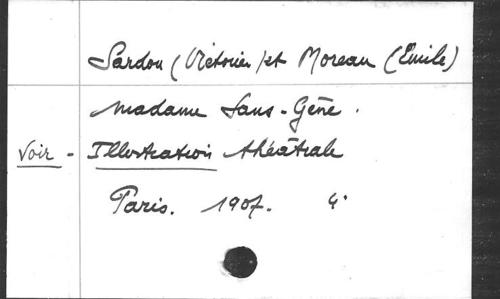 Sardou (Victorien) et Moreau (Emile)
Madame Sans-Gêne.
Voir - Illustration théâtrale
Paris. 1907. 4°